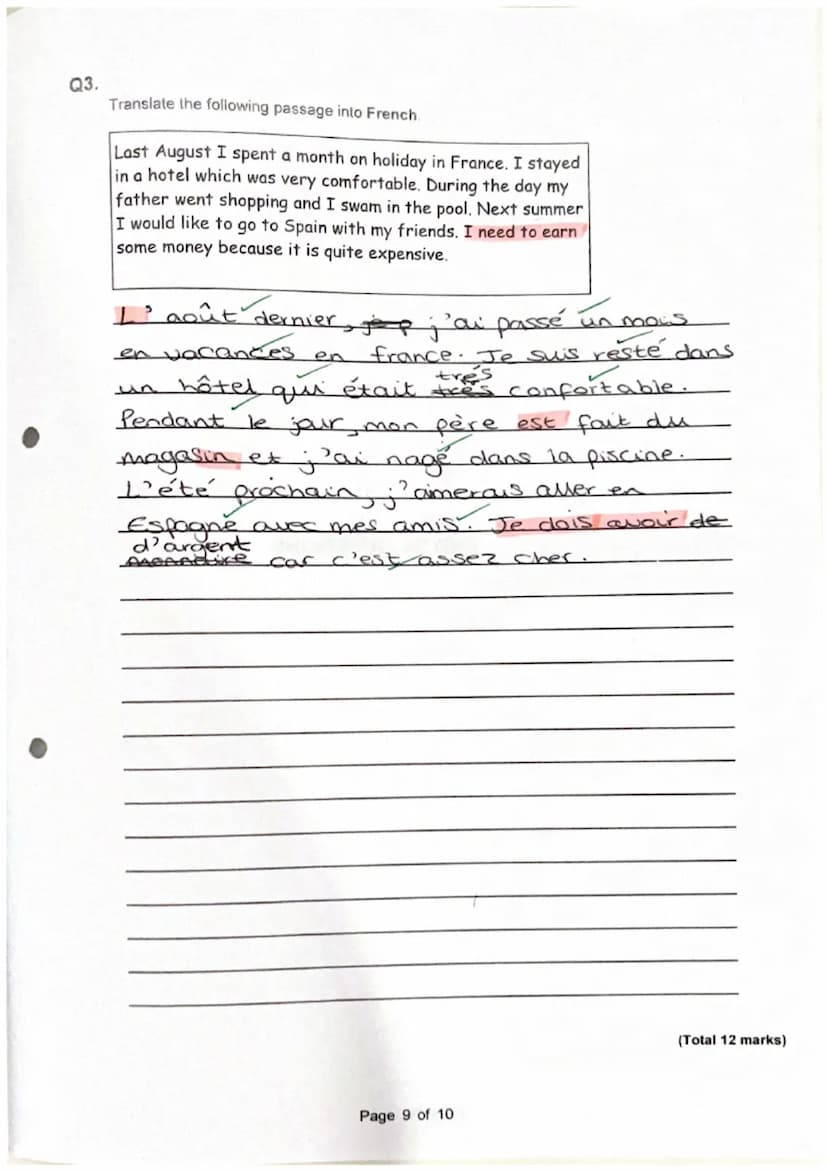 Q3.
Translate the following passage into French
Last August I spent a month on holiday in France. I stayed
in a hotel which was very comfortable. During the day my
father went shopping and I swam in the pool. Next summer
I would like to go to Spain with my friends. I need to earn
some money because it is quite expensive.
L' août dernier, j'ai passé un mois
en vacances en france. Je suis resté dans
un hôtel qui était très confortable.
Pendant le jour, mon père est fait du
magasin et j'ai nagé dans la piscine.
L'été prochain, j'aimerais aller en
Espagne avec mes amis. Je dois avoir de
d'argent car c'est assez cher.
(Total 12 marks)
Page 9 of 10